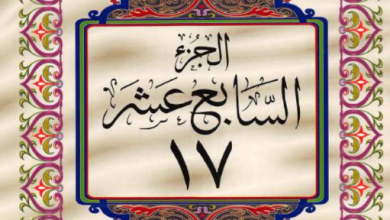 الجزء
السابع عشر
١٧